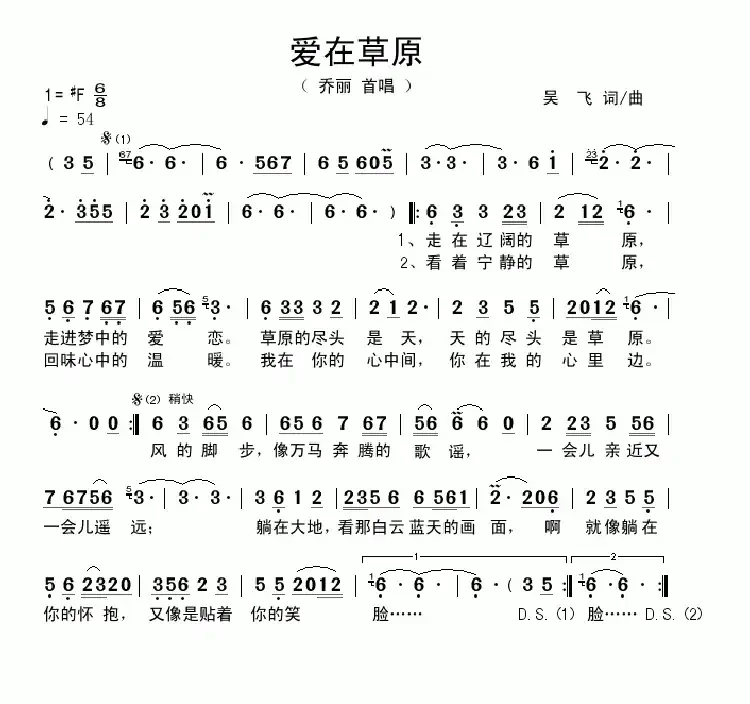 爱在草原
（ 乔丽 首唱 ）
1= #F 6/8
吴 飞 词/曲
♩ = 54
𝄋(1)
( 3 5 | 67 6· 6· | 6· 567 | 6 5 605 | 3· 3· | 3· 6 1 | 23 2· 2· |
2· 355 | 2 3 201 | 6· 6· | 6· 6· ) |: 6 3 3 23 | 2 12 1 6· |
1、走 在 辽 阔的 草 原，
2、看 着 宁 静的 草 原，
5 6 7 67 | 6 56 5 3· | 6 33 3 2 | 2 1 2· | 2 3 5 5 | 2012 1 6· |
走进梦中的 爱 恋。 草原的尽头 是 天， 天 的 尽 头 是 草 原。
回味心中的 温 暖。 我在 你的 心中间， 你 在 我 的 心 里 边。
𝄋(2) 稍快
6· 0 0 :| 6 3 65 | 656 7 67 | 56 6 6 0 | 2 23 5 56 |
风 的 脚 步，像万马 奔 腾的 歌 谣， 一 会儿 亲 近又
7 6756 5 3· | 3· 3· | 3 6 1 2 | 235 6 6 561 | 2· 206 | 2 3 5 5 |
一会儿遥 远； 躺在大地，看那白云 蓝天的画 面， 啊 就像躺在
5 6 2320 | 356 2 3 | 5 5 2012 | 1 6· 6· | 6· ( 3 5 :| 1 6· 6· :|
1 2
你的怀 抱， 又像是贴着 你的笑 脸…… D.S. (1) 脸…… D.S. (2)